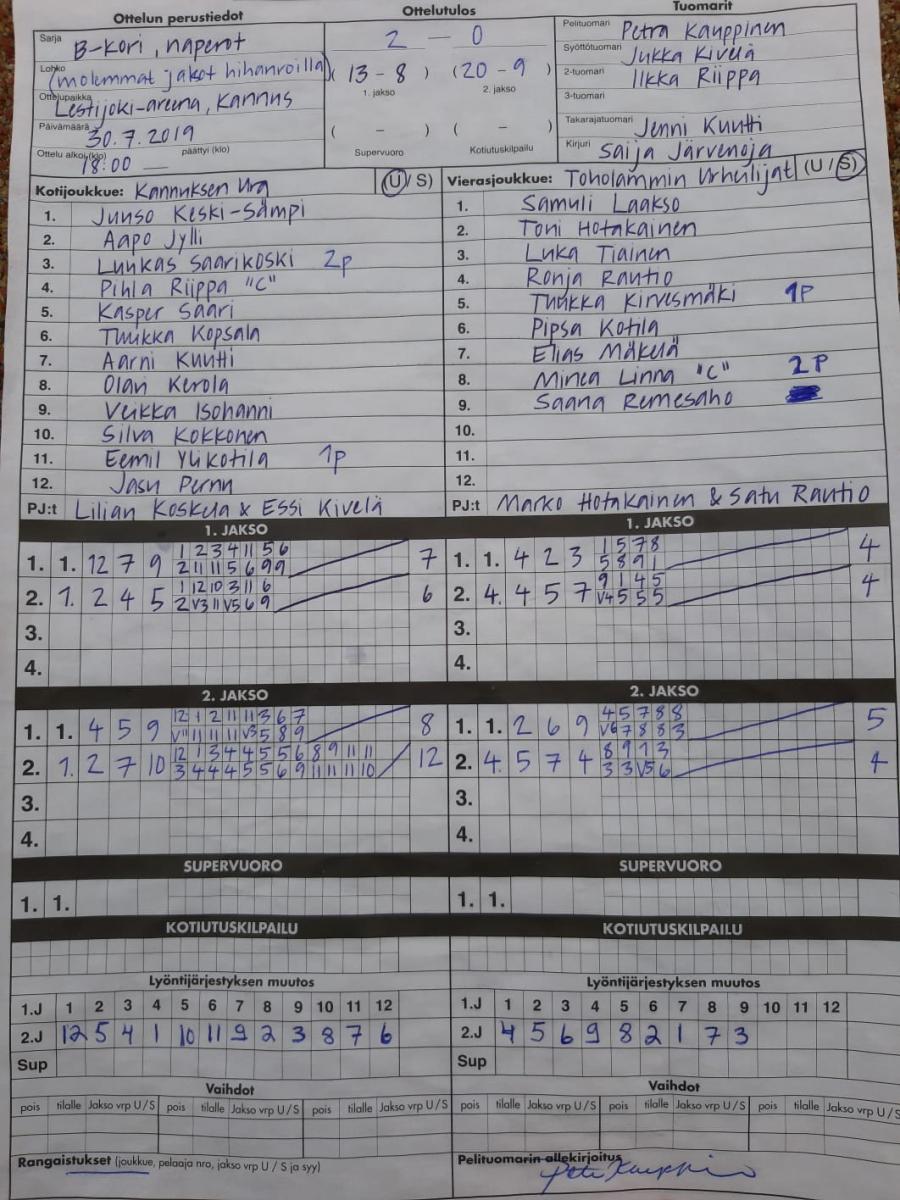 Ottelun perustiedot
Ottelutulos
Tuomarit
Sarja B-kori, naperot
Lohko (molemmat jaksot hihanroilla)
Ottelupaikka Lestijoki-areena, Kannus
Päivämäärä 30.7.2019
Ottelu alkoi (klo) 18:00 päättyi (klo)
2 - 0
(13 - 8) (20 - 9)
1. jakso 2. jakso
( - ) ( - )
Supervuoro Kotiutuskilpailu
Pelituomari Petra Kauppinen
Syöttötuomari Jukka Kivelä
2-tuomari Ilkka Riippa
3-tuomari
Takarajatuomari Jenni Kuutti
Kirjuri Saija Järvenoja
Kotijoukkue: Kannuksen Ura (U / S)
1. Juuso Keski-Sämpi
2. Aapo Jylli
3. Luukas Saarikoski 2p
4. Pihla Riippa "C"
5. Kasper Saari
6. Tuukka Kopsala
7. Aarni Kuutti
8. Olavi Kerola
9. Veikka Isohanni
10. Silva Kokkonen
11. Eemil Ylikotila 1p
12. Jasu Pernu
PJ:t Lilian Koskela & Essi Kivelä
Vierasjoukkue: Toholammin Urheilijat (U / S)
1. Samuli Laakso
2. Toni Hotakainen
3. Luka Tiainen
4. Ronja Rautio
5. Tuukka Kirvesmäki 1P
6. Pipsa Kotila
7. Elias Mäkelä
8. Minea Linna "C" 2P
9. Saana Remesaho
10.
11.
12.
PJ:t Marko Hotakainen & Satu Rautio
1. JAKSO
1. 1. 12 7 9 1 2 3 4 11 5 6 7
2 11 11 5 6 9 9
2. 1. 2 4 5 1 12 10 3 11 6 6
2 V3 11 V5 6 9
3.
4.
1. JAKSO
1. 1. 4 2 3 1 5 7 8 4
5 8 9 1
2. 4. 4 5 7 9 1 4 5 4
V4 5 5 5
3.
4.
2. JAKSO
1. 1. 4 5 9 12 1 2 11 11 3 6 7 8
V11 11 11 11 V3 5 8 9
2. 1. 2 7 10 12 1 3 4 4 5 5 6 8 9 11 11 12
3 4 4 4 5 5 6 9 11 11 11 10
3.
4.
2. JAKSO
1. 1. 2 6 9 4 5 7 8 8 5
V6 7 8 8 3
2. 4. 5 7 4 8 9 1 3 4
3 3 V5 6
3.
4.
SUPERVUORO
1. 1.
SUPERVUORO
1. 1.
KOTIUTUSKILPAILU
KOTIUTUSKILPAILU
Lyöntijärjestyksen muutos
1.J 1 2 3 4 5 6 7 8 9 10 11 12
2.J 12 5 4 1 10 11 9 2 3 8 7 6
Sup
Lyöntijärjestyksen muutos
1.J 1 2 3 4 5 6 7 8 9 10 11 12
2.J 4 5 6 9 8 2 1 7 3
Sup
Vaihdot
pois tilalle Jakso vrp U / S pois tilalle Jakso vrp U / S pois tilalle Jakso vrp U / S
Vaihdot
pois tilalle Jakso vrp U / S pois tilalle Jakso vrp U / S pois tilalle Jakso vrp U / S
Rangaistukset (joukkue, pelaaja nro, jakso vrp U / S ja syy)
Pelituomarin allekirjoitus